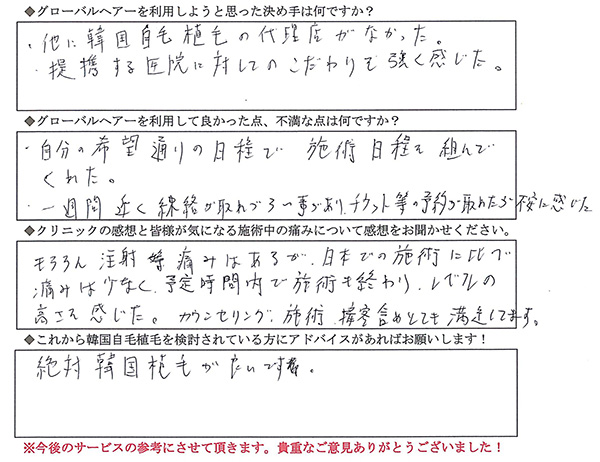 ◆グローバルヘアーを利用しようと思った決め手は何ですか？
・他に韓国自毛植毛の代理店がなかった。
・提携する医院に対してのこだわりを強く感じた。
◆グローバルヘアーを利用して良かった点、不満な点は何ですか？
・自分の希望通りの日程で 施術日程を組んで
くれた。
・一週間近く連絡が取れづらい事があり、チケット等の予約が取れたか不安に感じた
◆クリニックの感想と皆様が気になる施術中の痛みについて感想をお聞かせください。
もちろん 注射等 痛みはあるが、日本での施術に比べ
痛みは少なく、予定時間内で施術も終わり、レベルの
高さを感じた。カウンセリング、施術、接客含めとても満足してます。
◆これから韓国自毛植毛を検討されている方にアドバイスがあればお願いします！
絶対韓国植毛が です。
※今後のサービスの参考にさせて頂きます。貴重なご意見ありがとうございました！